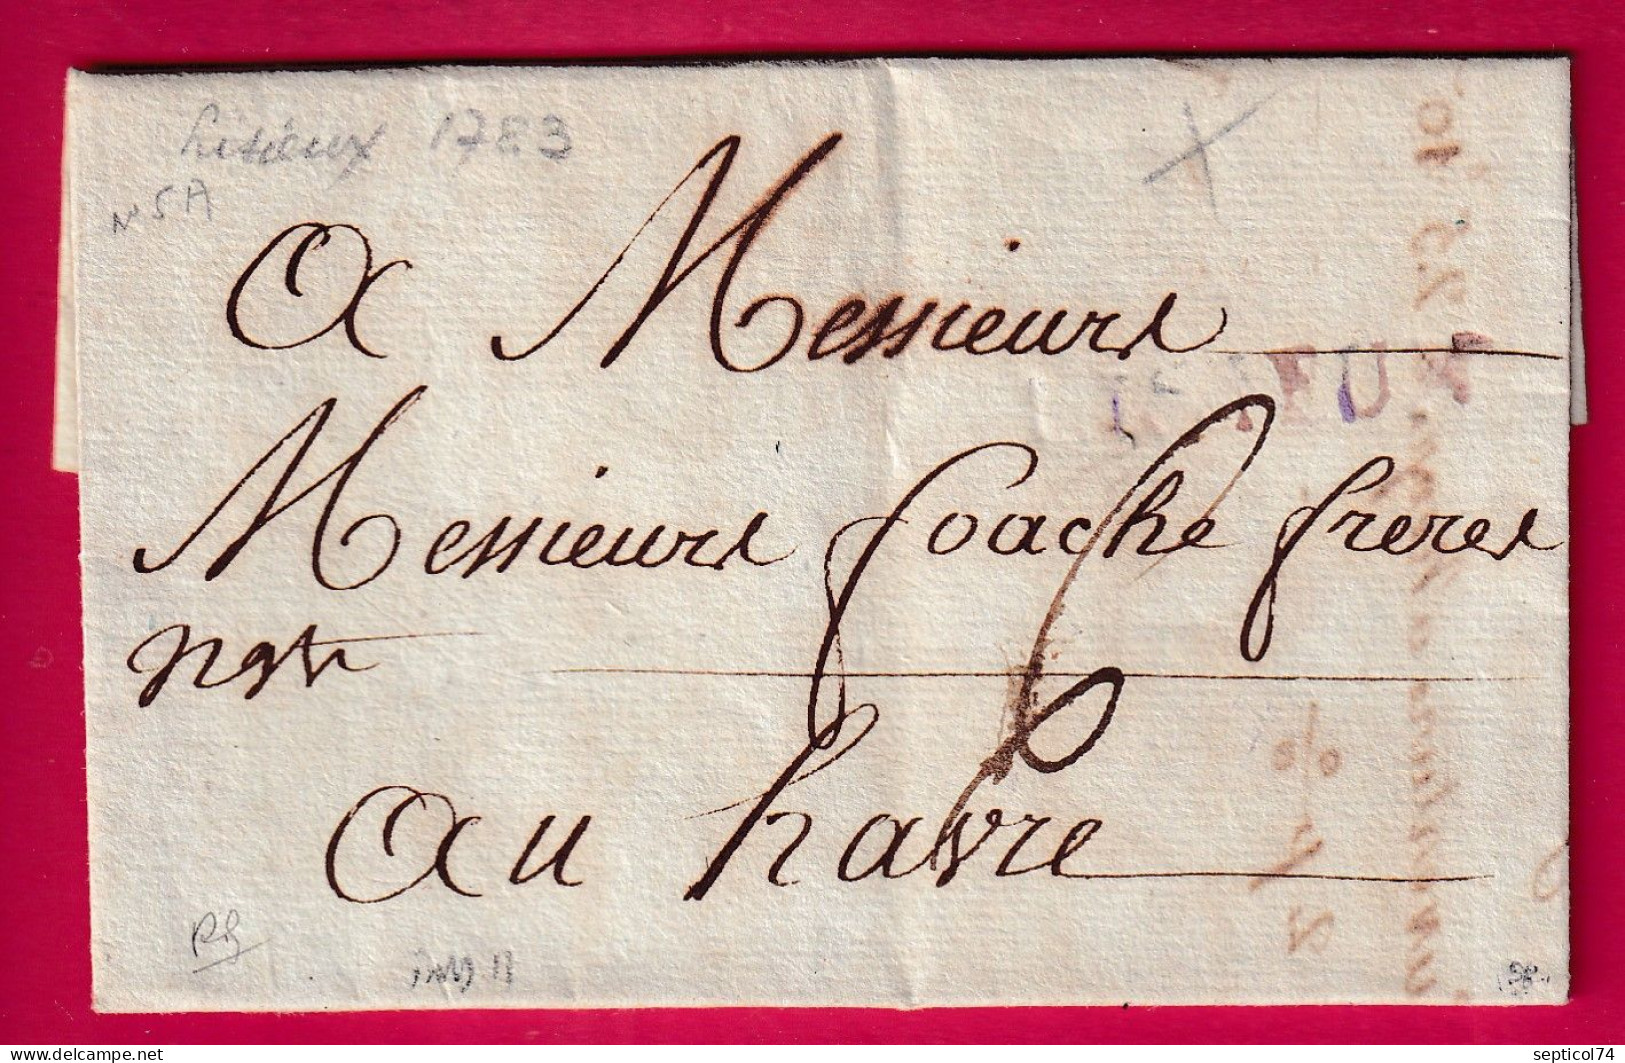 Lisieux 1783
N 5A
A Messieurs
LISIEUX
Messieurs foache freres
negts
6
Au havre
delcampe.net
septicol74